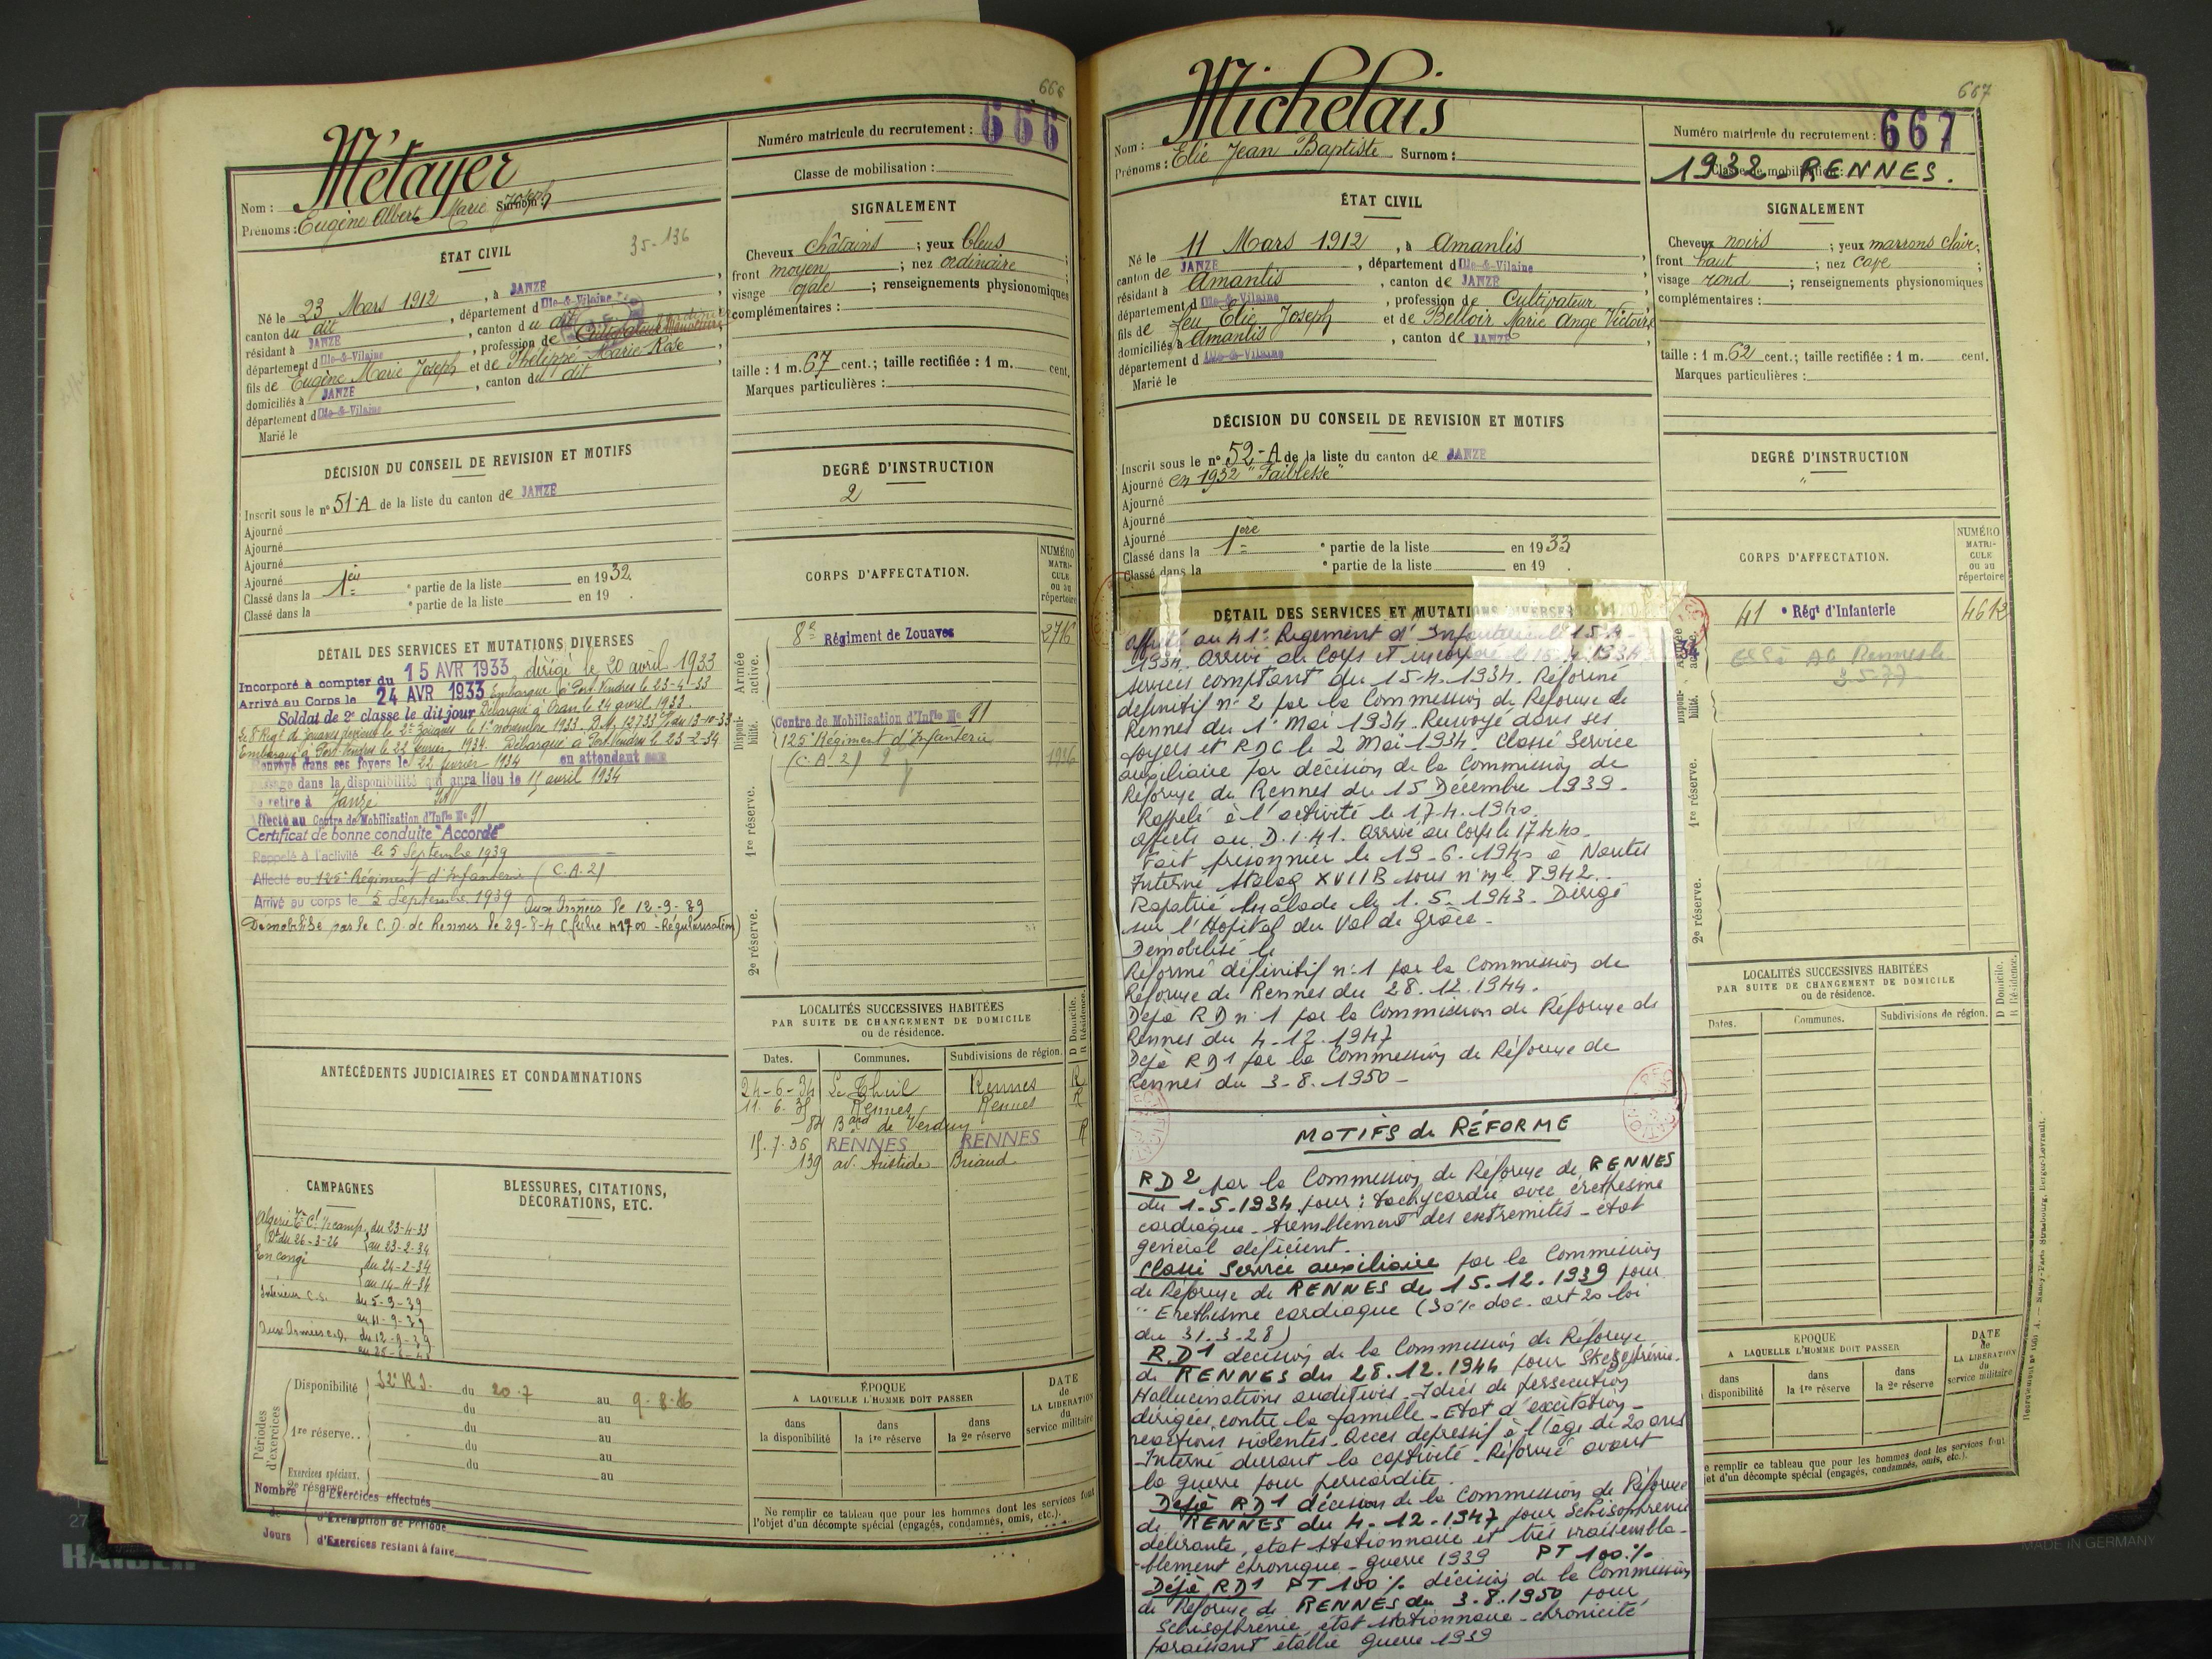 666
Métayer
Nom :
Prénoms : Eugène Albert Marie Joseph Surnom :
35-136
Numéro matricule du recrutement : 666
Classe de mobilisation :
ÉTAT CIVIL
Né le 23 Mars 1912, à JANZÉ
canton du dit, département d'Ille-&-Vilaine
résidant à JANZÉ, canton du dit
département d'Ille-&-Vilaine, profession de
fils de Eugène Marie Joseph et de Thélippé Marie Rose
domiciliés à JANZÉ, canton du dit
département d'Ille-&-Vilaine
Marié le
SIGNALEMENT
Cheveux châtains ; yeux bleus
front moyen ; nez ordinaire ;
visage ovale ; renseignements physionomiques
complémentaires :
taille : 1 m. 67 cent. ; taille rectifiée : 1 m. cent.
Marques particulières :
DÉCISION DU CONSEIL DE REVISION ET MOTIFS
Inscrit sous le nº 51-A de la liste du canton de JANZÉ
Ajourné
Ajourné
Ajourné
Ajourné
Classé dans la 1ère partie de la liste en 1932.
Classé dans la partie de la liste en 19 .
DEGRÉ D'INSTRUCTION
2
DÉTAIL DES SERVICES ET MUTATIONS DIVERSES
Incorporé à compter du 15 AVR 1933, dirigé le 20 avril 1933
Arrivé au Corps le 24 AVR 1933 Embarqué à Port-Vendres le 23-4-33
Soldat de 2e classe le dit jour Débarqué à Oran le 24 avril 1933.
Le 8e Régt de Zouaves devient le 2e Zouaves le 1er novembre 1933. D.M. 12733 du 13-10-33
Embarqué à Port-Vendres le 22 février 1934. Débarqué à Port-Vendres le 23-2-34
Renvoyé dans ses foyers le 22 février 1934 en attendant son
passage dans la disponibilité qui aura lieu le 15 avril 1934
Se retire à Janzé I&V
Affecté au Centre de Mobilisation d'Infie Nº 91
Certificat de bonne conduite "Accordé"
Rappelé à l'activité le 5 Septembre 1939
Affecté au 125e Régiment d'Infanterie (C.A.2)
Arrivé au corps le 5 Septembre 1939 Aux Armées le 12-9-39
Démobilisé par le C.D. de Rennes le 29-8-40 (fiche n 1700 - Régularisation)
CORPS D'AFFECTATION.
NUMÉRO MATRICULE ou au répertoire
Armée active.
8e Régiment de Zouaves 2716
Disponibilité.
Centre de Mobilisation d'Infie Nº 91
125e Régiment d'Infanterie
(C.A 2)
1re réserve.
2e réserve.
LOCALITÉS SUCCESSIVES HABITÉES
PAR SUITE DE CHANGEMENT DE DOMICILE
ou de résidence.
D Domicile. R Résidence.
Dates. Communes. Subdivisions de région.
24-6-34 Le Theil Rennes R
11-6-35 Rennes Rennes R
84 Bard de Verdun
15-7-36 RENNES RENNES R
139 av. Aristide Briand
ANTÉCÉDENTS JUDICIAIRES ET CONDAMNATIONS
CAMPAGNES
Algérie
Dt du 26-3-26 du 23-4-33
au 23-2-34
En congé du 24-2-34
au 14-4-34
Intérieur C.S. du 5-9-39
au 11-9-39
Aux Armées C.D. du 12-9-39
BLESSURES, CITATIONS,
DÉCORATIONS, ETC.
Périodes d'exercices
Disponibilité 32e R.I. du 20-7 au 9-8-36
du au
1re réserve.. du au
du au
du au
Exercices spéciaux. au
2e réserve.
Nombre de Jours
d'Exercices effectués
d'Exemption de Période
d'Exercices restant à faire
ÉPOQUE
A LAQUELLE L'HOMME DOIT PASSER
dans la disponibilité
dans la 1re réserve
dans la 2e réserve
DATE de LA LIBÉRATION du service militaire
Ne remplir ce tableau que pour les hommes dont les services font
l'objet d'un décompte spécial (engagés, condamnés, omis, etc.).
667
Michelais
Nom :
Prénoms : Elie Jean Baptiste Surnom :
Numéro matricule du recrutement : 667
Classe de mobilisation :
1932 - RENNES.
ÉTAT CIVIL
Né le 11 Mars 1912, à Amanlis
canton de JANZÉ, département d'Ille-&-Vilaine
résidant à Amanlis, canton de JANZÉ
département d'Ille-&-Vilaine, profession de Cultivateur
fils de feu Elie Joseph et de Belloir Marie Ange Victoire
domiciliés à Amanlis, canton de JANZÉ
département d'Ille-&-Vilaine
Marié le
SIGNALEMENT
Cheveux noirs ; yeux marrons clairs
front haut ; nez cave ;
visage rond ; renseignements physionomiques
complémentaires :
taille : 1 m. 62 cent. ; taille rectifiée : 1 m. cent.
Marques particulières :
DÉCISION DU CONSEIL DE REVISION ET MOTIFS
Inscrit sous le nº 52-A de la liste du canton de JANZÉ
Ajourné en 1932 "Faiblesse"
Ajourné
Ajourné
Ajourné
Classé dans la 1ère partie de la liste en 1933
Classé dans la partie de la liste en 19 .
DEGRÉ D'INSTRUCTION
"
DÉTAIL DES SERVICES ET MUTATIONS DIVERSES
Affecté au 41e Régiment d'Infanterie le 15-4-
1934. Arrivé au Corps et incorporé le 15-4-1934
services comptant du 15-4-1934. Réformé
définitif nº 2 par la Commission de Réforme de
Rennes du 1er Mai 1934. Renvoyé dans ses
foyers et RDC le 2 Mai 1934. Classé Service
auxiliaire par décision de la Commission de
Réforme de Rennes du 15 Décembre 1939.
Rappelé à l'activité le 17.4.1940.
Affecté au D.I.41. Arrivé au Corps le 17.4.40.
Fait prisonnier le 19-6-1940 à Nantes
Interné Stalag XVIIB sous n° ml. 8942.
Rapatrié malade le 1.5.1943. Dirigé
sur l'Hôpital du Val de Grâce -
Démobilisé le
Réformé définitif nº 1 par la Commission de
Réforme de Rennes du 28.12.1944.
Déjà RD nº 1 par la Commission de Réforme de
Rennes du 4-12-1947
Déjà RD1 par la Commission de Réforme de
Rennes du 3-8-1950 -
MOTIFS de RÉFORME
RD2 par la Commission de Réforme de RENNES
du 1-5-1934 pour : tachycardie avec éréthisme
cardiaque - tremblement des extrémités - état
général déficient.
Classé Service auxiliaire par la Commission
de Réforme de RENNES du 15.12.1939 pour
"Eréthisme cardiaque (30% doc. art 20 loi
du 31.3.28)
RD1 décision de la Commission de Réforme
de RENNES du 28.12.1944 pour
Hallucinations auditives. Idées de persécution
dirigées contre la famille - Etat d'excitation -
réactions violentes. Accès dépressif à l'âge de 20 ans
- Interné durant la captivité - Réformé avant
la guerre pour péricardite.
Déjà RD1 décision de la Commission de Réforme
de RENNES du 4-12-1947 pour Schisophrénie
délirante, état stationnaire et très vraisembla-
-blement chronique - guerre 1939 PT 100%
Déjà RD1 PT 100% décision de la Commission
de Réforme de RENNES du 3.8.1950 pour
Schisophrénie, état stationnaire - chronicité
paraissant établie guerre 1939
CORPS D'AFFECTATION.
NUMÉRO MATRICULE ou au répertoire
Armée active.
34
41 e Régt d'Infanterie 4612
Disponibilité.
1re réserve.
2e réserve.
LOCALITÉS SUCCESSIVES HABITÉES
PAR SUITE DE CHANGEMENT DE DOMICILE
ou de résidence.
D Domicile. R Résidence.
Dates. Communes. Subdivisions de région.
EPOQUE
A LAQUELLE L'HOMME DOIT PASSER
dans disponibilité
dans la 1re réserve
dans la 2e réserve
DATE de LA LIBÉRATION du service militaire
e remplir ce tableau que pour les hommes dont les services font
jet d'un décompte spécial (engagés, condamnés, omis, etc.).
MADE IN GERMANY